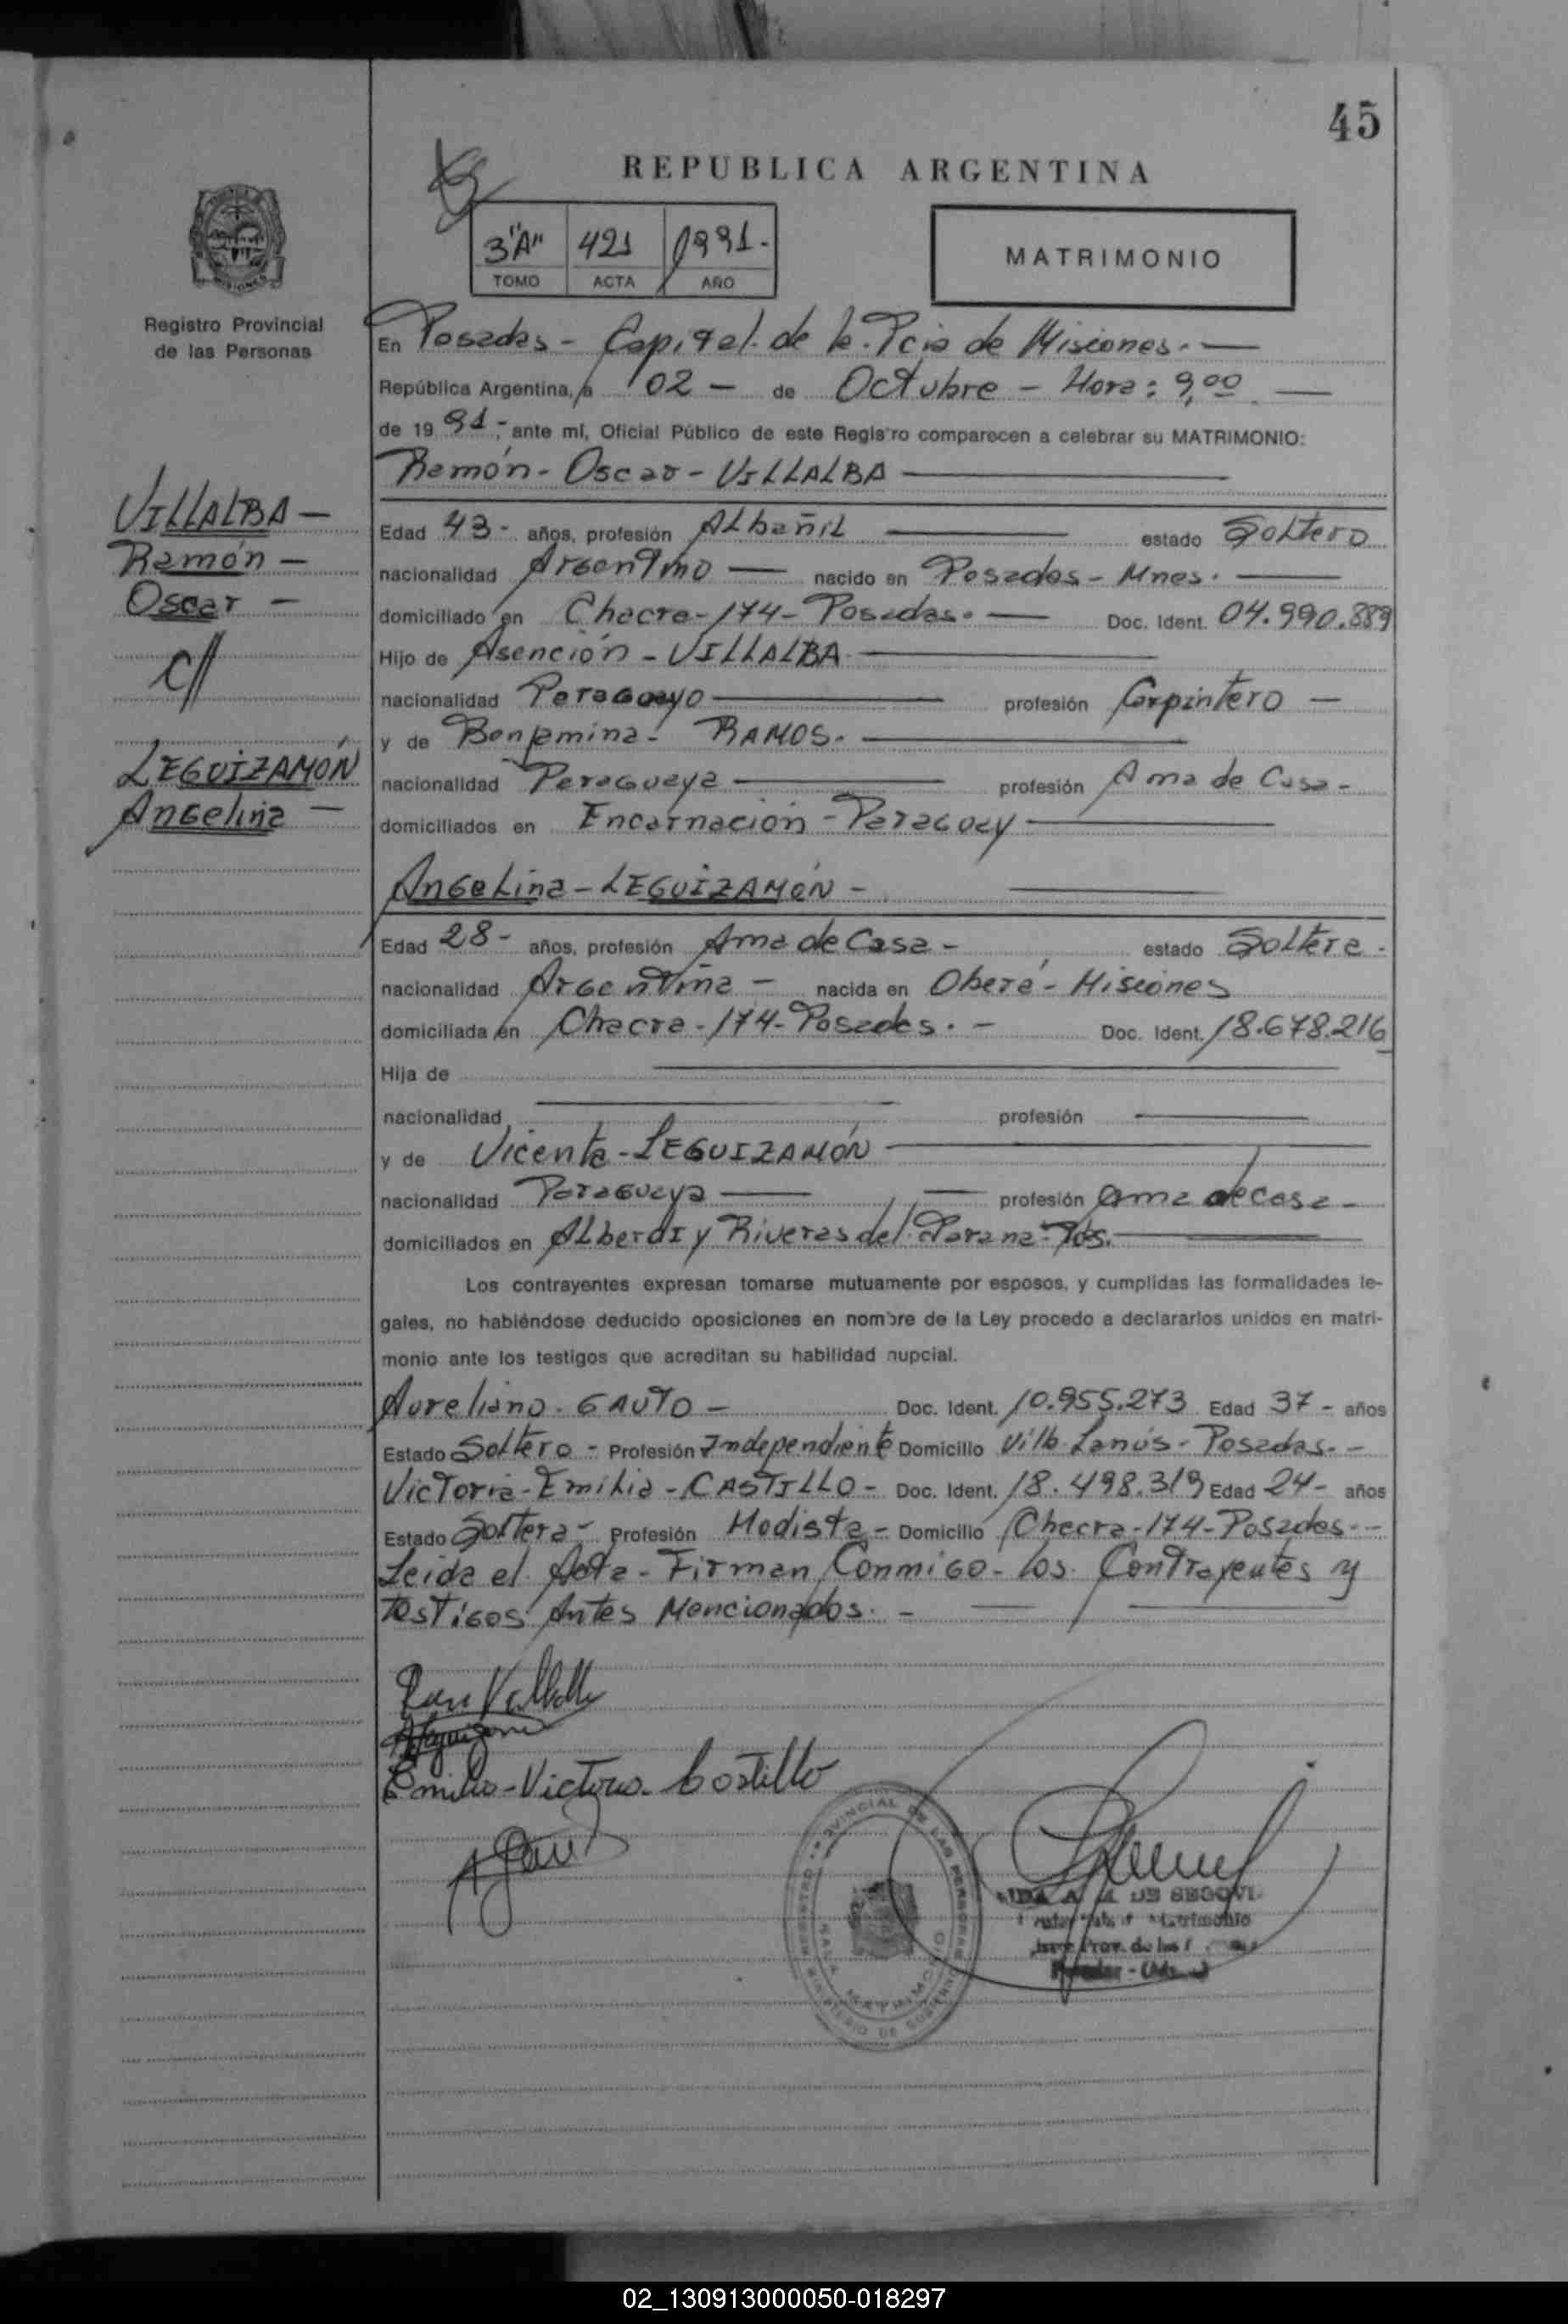 45
REPUBLICA ARGENTINA
3"A" 421 1991.-
TOMO ACTA AÑO
MATRIMONIO
Registro Provincial
de las Personas
En Posadas - Capital de la Pcia de Misiones.-
República Argentina, a 02 - de Octubre - Hora: 9,00
de 19 91,- ante mí, Oficial Público de este Registro comparecen a celebrar su MATRIMONIO:
Ramón - Oscar - VILLALBA
VILLALBA -
Ramón -
Oscar -
c//
LEGUIZAMÓN
Angelina -
Edad 43 - años, profesión Albañil estado Soltero
nacionalidad Argentino - nacido en Posadas - Mnes.
domiciliado en Chacra - 174 - Posadas.- Doc. Ident. 04.990.889
Hijo de Asención - VILLALBA
nacionalidad Paraguayo profesión Carpintero -
y de Benjamina - RAMOS.
nacionalidad Paraguaya profesión Ama de Casa -
domiciliados en Encarnación - Paraguay
Angelina - LEGUIZAMÓN -
Edad 28 - años, profesión Ama de Casa - estado Soltera -
nacionalidad Argentina - nacida en Oberá - Misiones
domiciliada en Chacra - 174 - Posadas.- Doc. Ident. 18.678.216
Hija de
nacionalidad profesión
y de Vicenta - LEGUIZAMÓN
nacionalidad Paraguaya profesión ama de casa -
domiciliados en Alberdi y Riveras del Parana - Pos.
Los contrayentes expresan tomarse mutuamente por esposos, y cumplidas las formalidades le-
gales, no habiéndose deducido oposiciones en nombre de la Ley procedo a declararlos unidos en matri-
monio ante los testigos que acreditan su habilidad nupcial.
Aureliano - GAUTO - Doc. Ident. 10.955.273 Edad 37 - años
Estado Soltero - Profesión Independiente Domicilio Villa Lanús - Posadas.-
Victoria - Emilia - CASTILLO - Doc. Ident. 18.498.319 Edad 24 - años
Estado Soltera - Profesión Modista - Domicilio Chacra - 174 - Posadas.-
Leida el Acta - Firman Conmigo - los Contrayentes y
testigos Antes Mencionados. -
Emilia - Victoria - Castillo
REGISTRO PROVINCIAL DE LAS PERSONAS
MINISTERIO DE GOBIERNO
SALA MATRIMONIO
DE SEGOVI
Matrimonio
Prov. de las
02_130913000050-018297